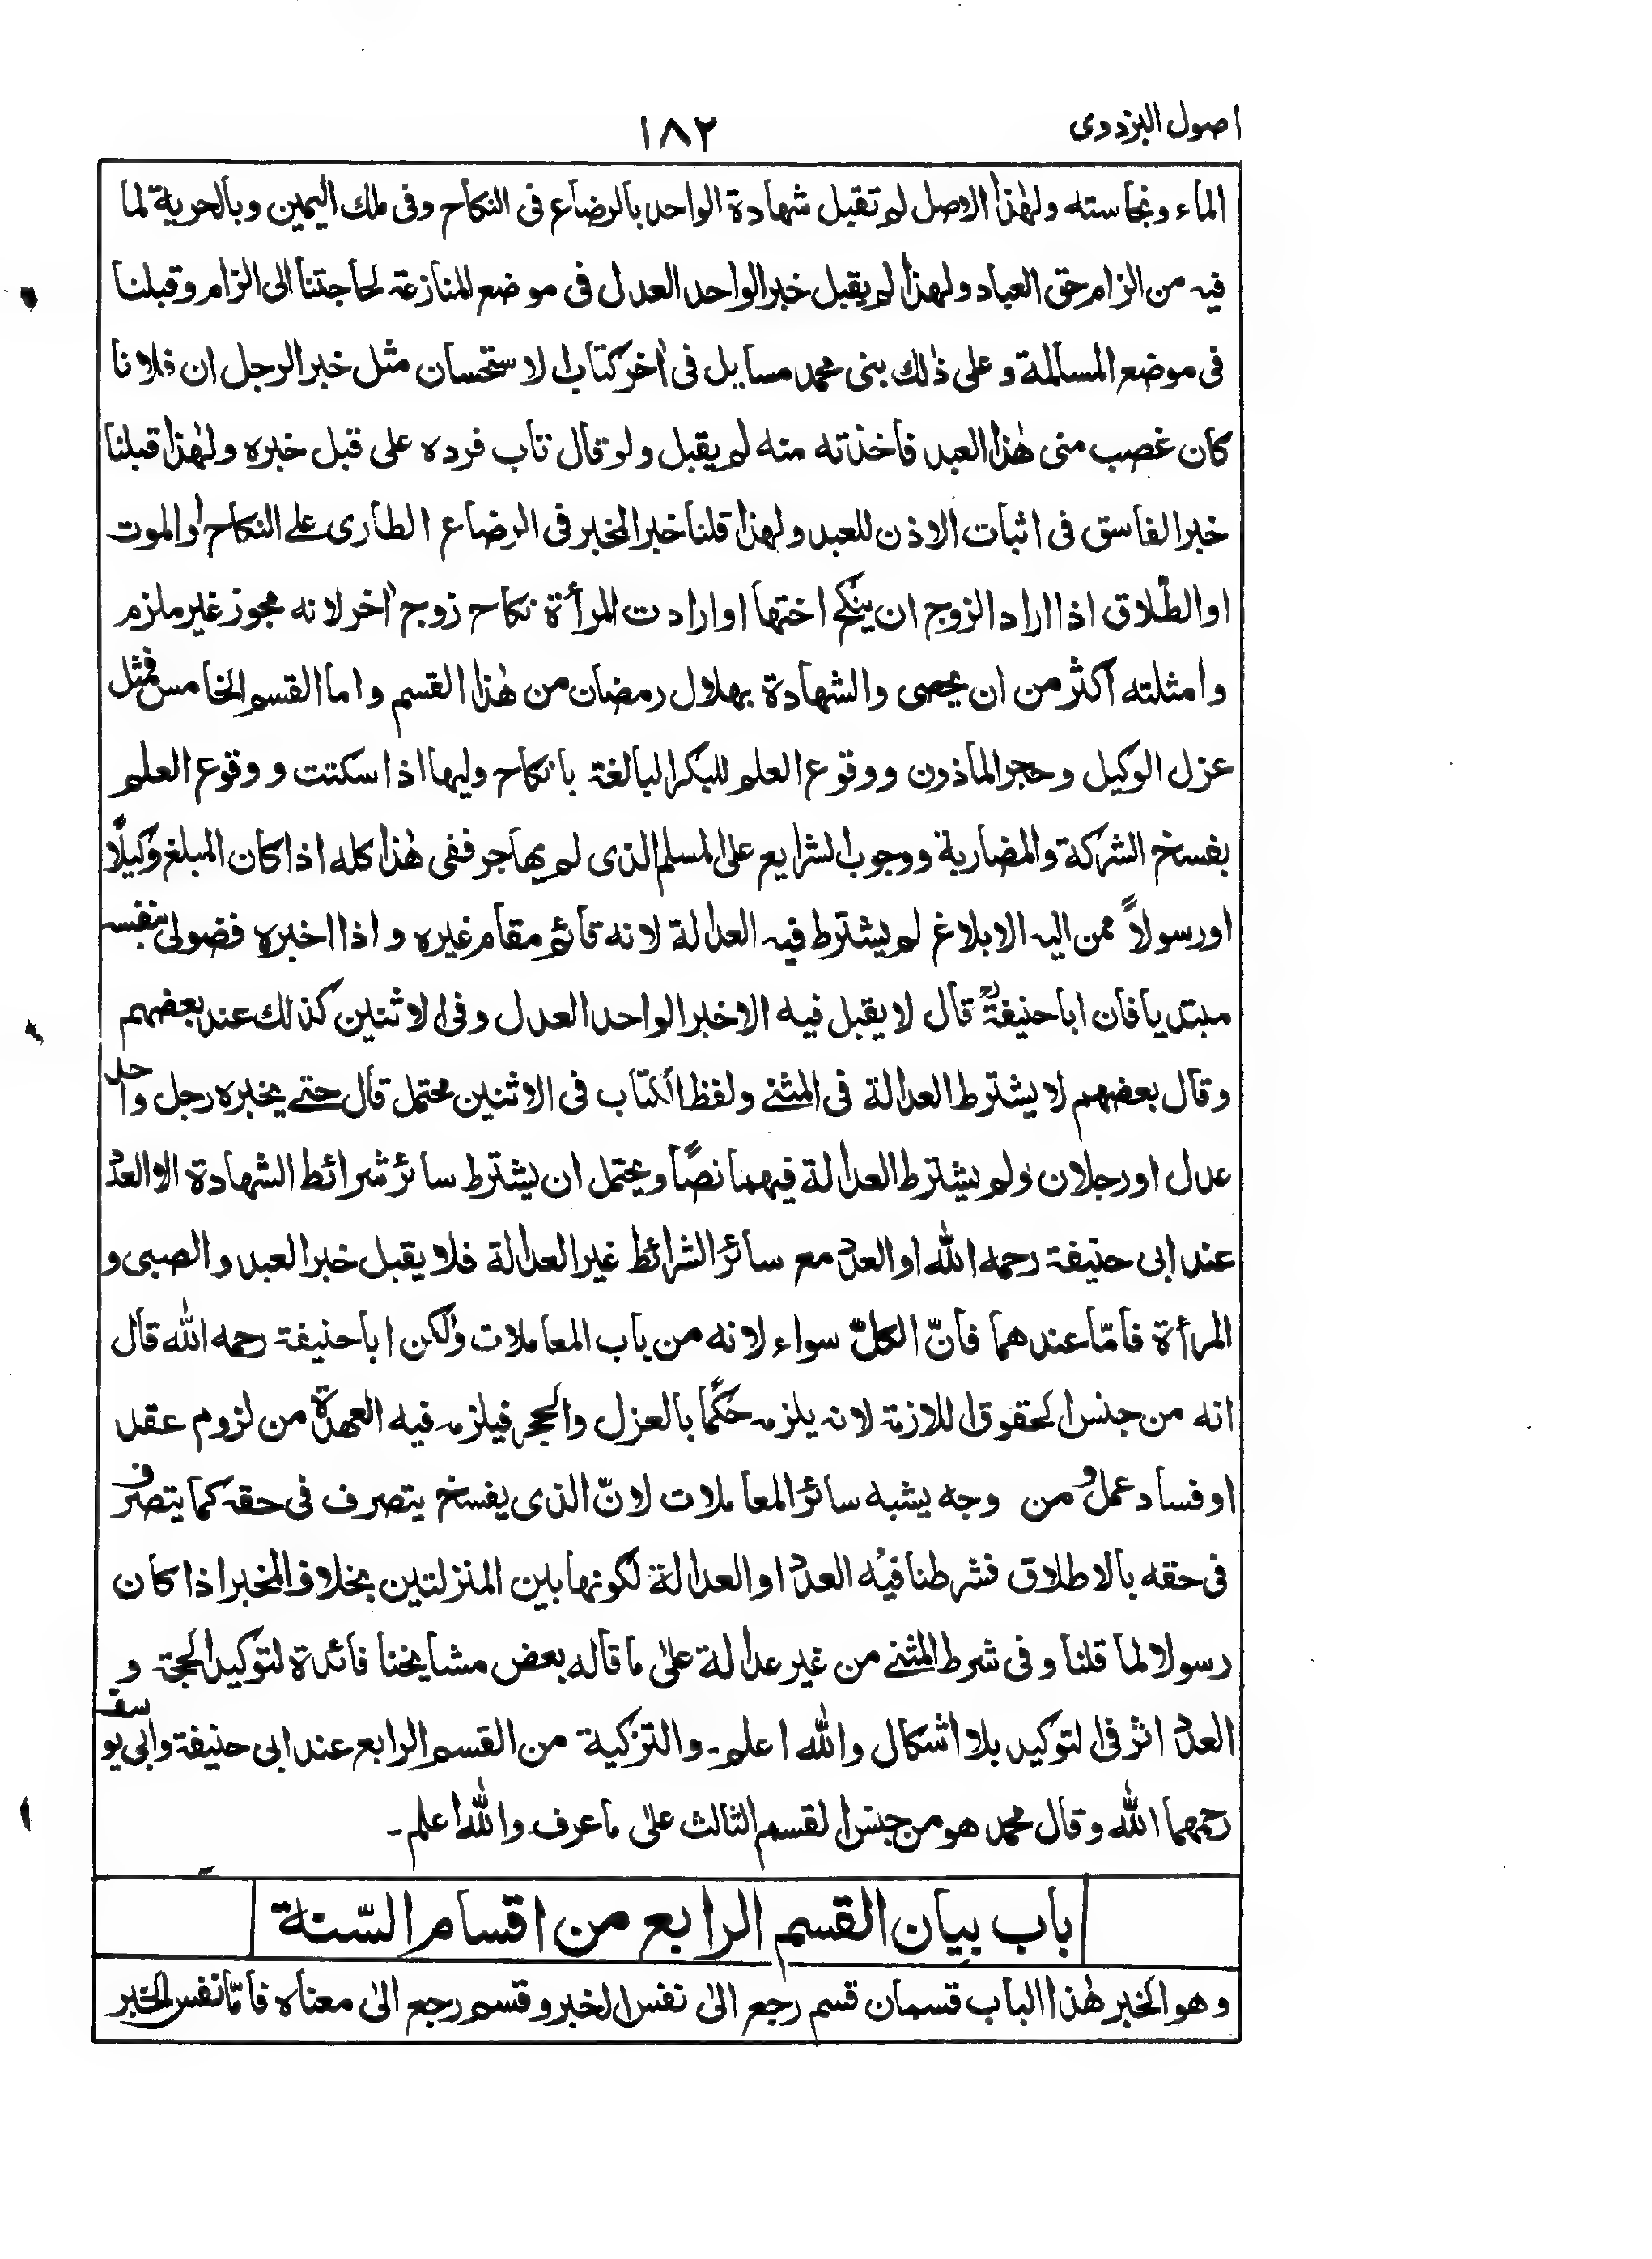 اصول البزدوى
١٨٢
الماء ونجاسته ولهٰذا الاصل لم تقبل شهادة الواحد بالرضاع فى النكاح وفى ملك اليمين وبالحرية لما
فيه من الزام حق العباد ولهذا لم يقبل خبر الواحد العدل فى موضع المنازعة لحاجتنا الى الزام وقبلنا
فى موضع المسالمة وعلى ذٰلك بنى محمد مسايل فى اٰخر كتاب الاستحسان مثل خبر الرجل ان فلانا
كان غصب منى هٰذا العبد فاخذته منه لم يقبل ولو قال تاب فرده على قبل خبره ولهٰذا قبلنا
خبر الفاسق فى اثبات الاذن للعبد ولهذا قلنا خبر المخبر فى الرضاع الطارى علے النكاح او الموت
او الطّلاق اذا اراد الزوج ان ينكح اختها او ارادت المرأة نكاح زوج اٰخر لانه مجوز غير ملزم
وامثلته اكثر من ان يحصى والشهادة بهلال رمضان من هٰذا القسم واما القسم الخامس فمثل
عزل الوكيل وحجر الماذون ووقوع العلم للبكر البالغة بانكاح وليها اذا سكتت ووقوع العلم
بفسخ الشركة والمضاربة ووجوب الشرايع على المسلم الذى لم يهاجر ففى هٰذا كله اذا كان المبلغ وكيلًا
او رسولاً ممن اليه الابلاغ لم يشترط فيه العدالة لانه قائم مقام غيره واذا اخبره فضولى بنفسه
مبتديا فان ابا حنيفةؒ قال لا يقبل فيه الا خبر الواحد العدل وفى الاثنين كذلك عند بعضهم
وقال بعضهم لا يشترط العدالة فى المثنے ولفظ الكتاب فى الاثنين محتمل قال حتے يخبره رجل واحد
عدل او رجلان ولم يشترط العدالة فيهما نصًا ويحتمل ان يشترط سائر شرائط الشهادة الا العدد
عند ابى حنيفة رحمه الله او العدد مع سائر الشرائط غير العدالة فلا يقبل خبر العبد والصبى و
المرأة فامّا عندهما فانّ الكلّ سواء لانه من باب المعاملات ولٰكن ابا حنيفة رحمه الله قال
انه من جنس الحقوق اللازمة لانه يلزمه حكمًا بالعزل والحجر فيلزمه فيه العهدة من لزوم عقد
او فساد عمل ومن وجه يشبه سائر المعاملات لانّ الذى يفسخ يتصرف فى حقه كما يتصرف
فى حقه بالاطلاق فشرطنا فيه العدد او العدالة لكونها بين المنزلتين بخلاف المخبر اذا كان
رسولا لما قلنا وفى شرط المثنے من غير عدالة علىٰ ما قاله بعض مشايخنا فائدة لتوكيد الحجة و
العدد اثر فى التوكيد بلا اشكال والله اعلم۔ والتزكية من القسم الرابع عند ابى حنيفة وابى يوسف
رحمهما الله وقال محمد هو من جنس القسم الثالث علىٰ ما عرف والله اعلم۔
باب بيان القسم الرابع من اقسام السّنة
وهو الخبر هٰذا الباب قسمان قسم رجع الىٰ نفس الخبر وقسم رجع الىٰ معناه فامّا نفس الخبر